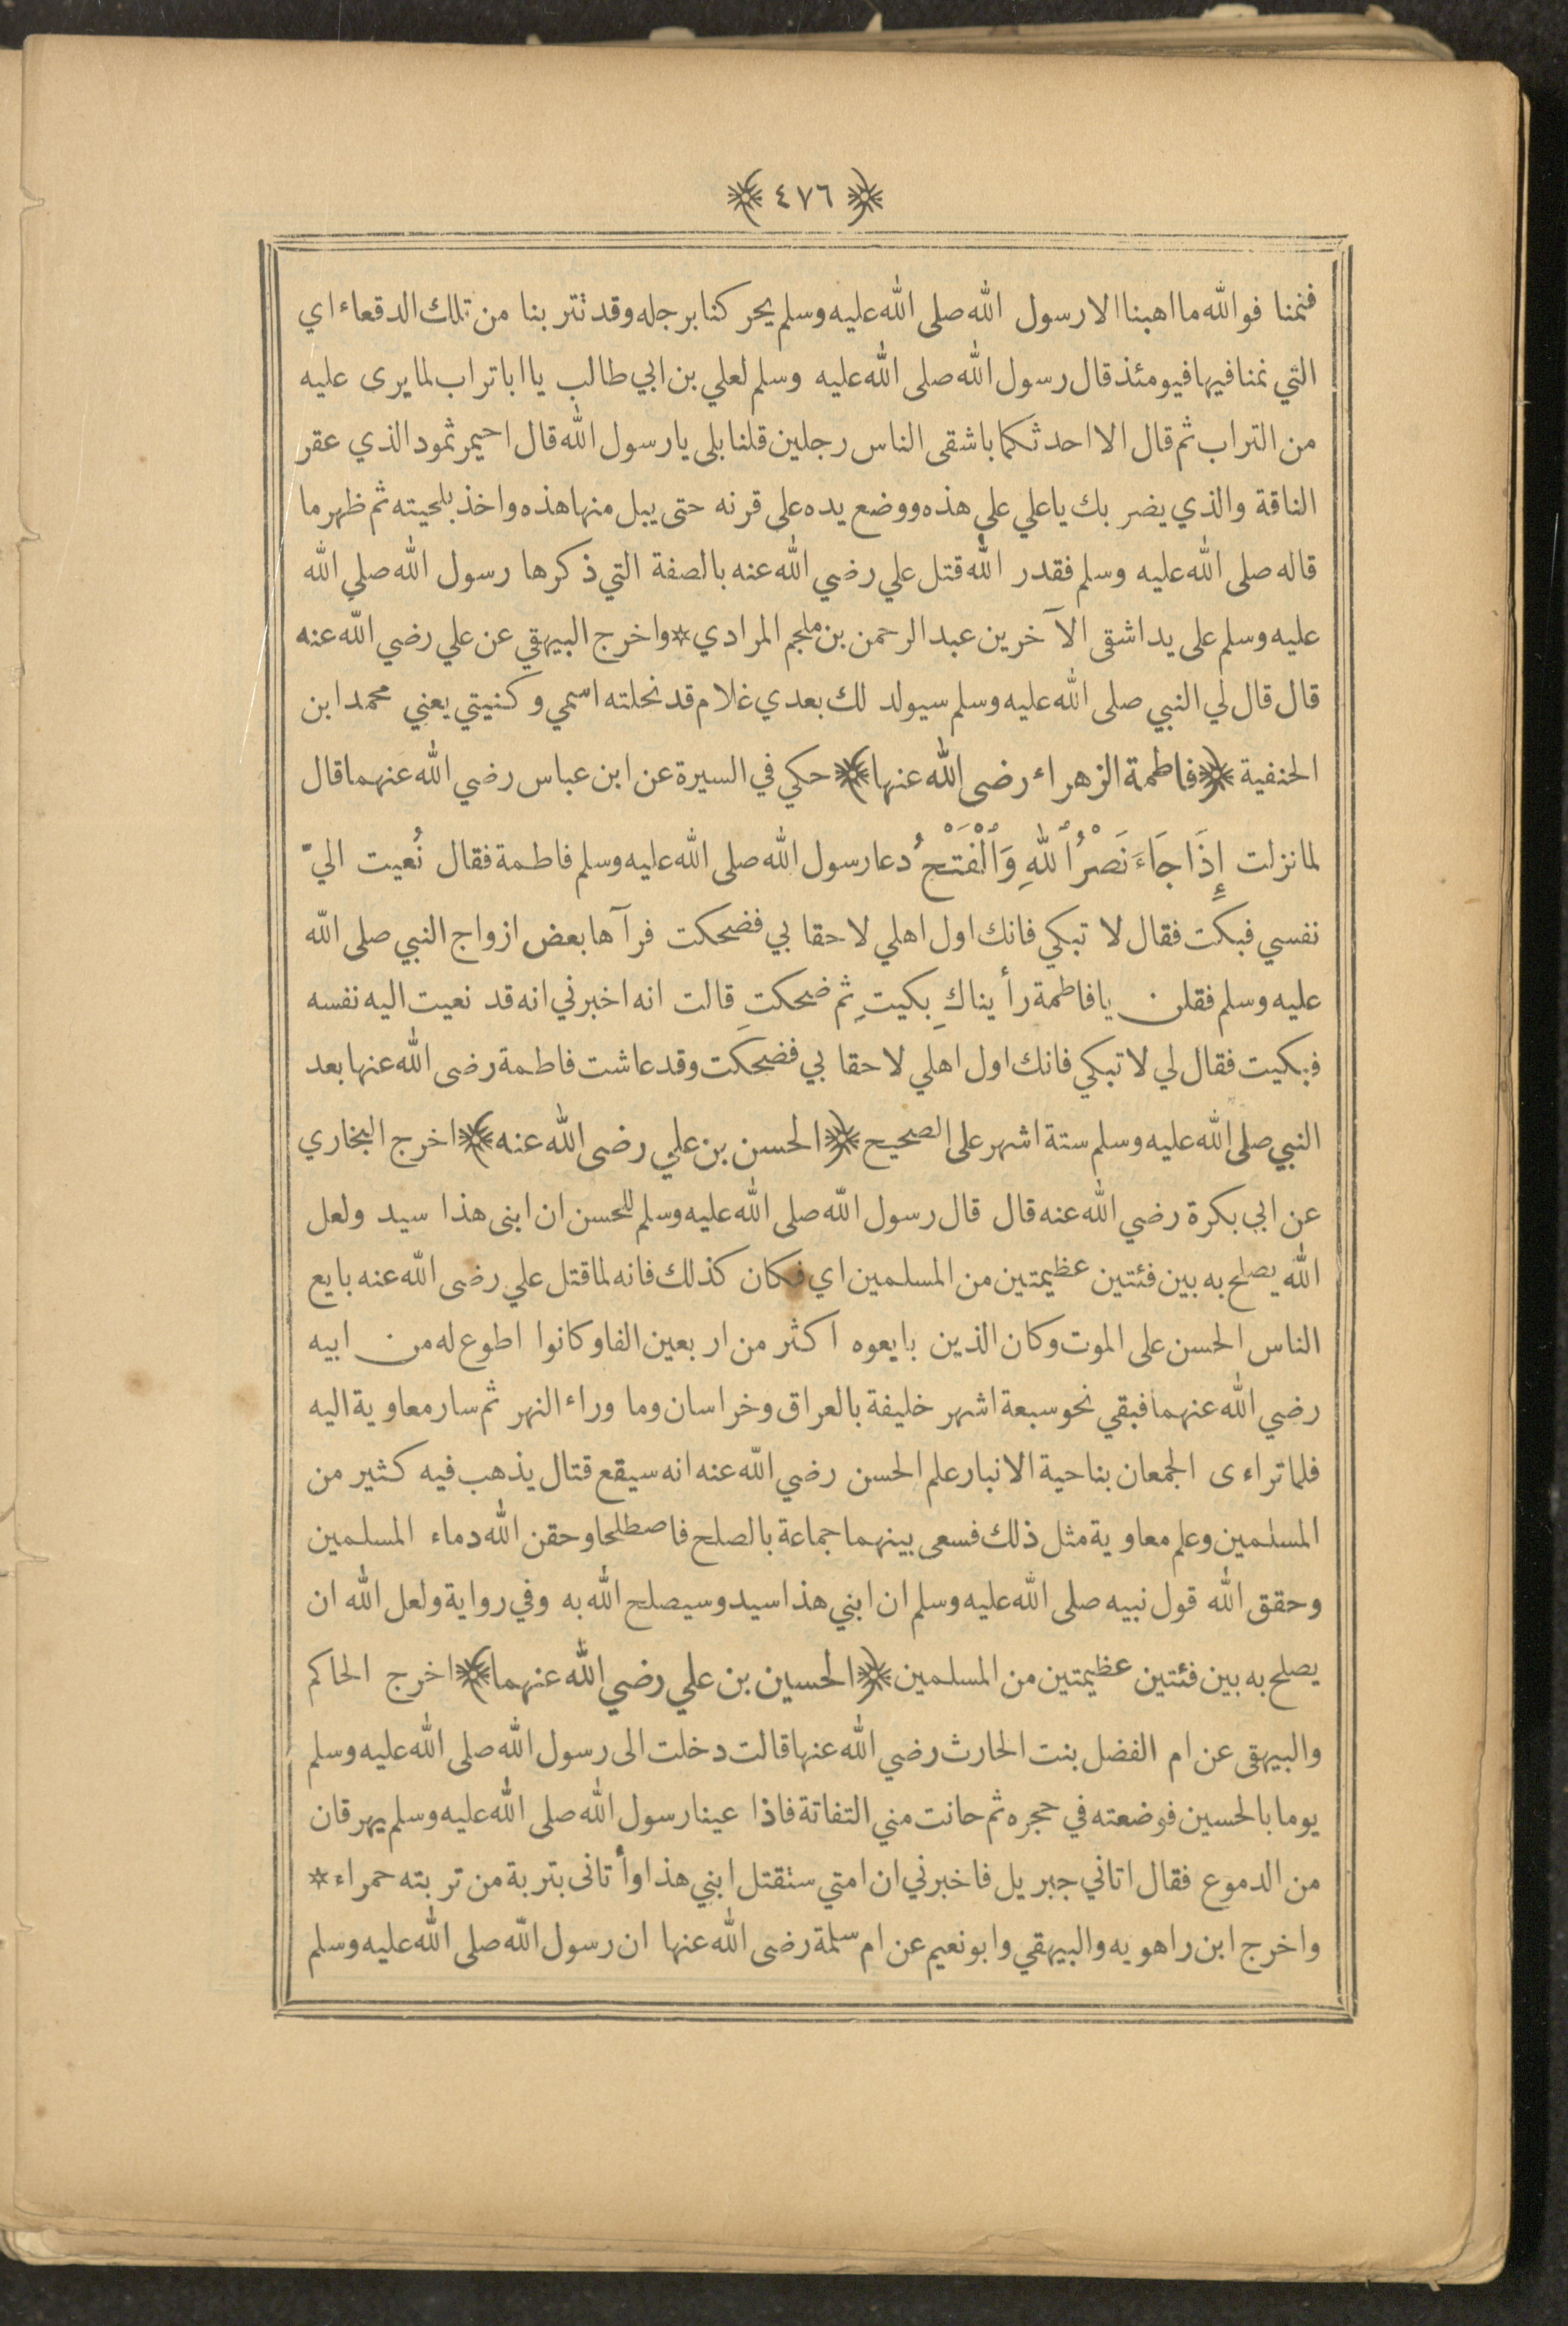 ﴿ ٤٧٦ ﴾
فنمنا فوالله ما اهبنا الا رسول الله صلى الله عليه وسلم يحركنا برجله وقد تتربنا من تلك الدقعاء اي
التي نمنا فيها فيومئذ قال رسول الله صلى الله عليه وسلم لعلي بن ابي طالب يا ابا تراب لما يرى عليه
من التراب ثم قال الا احدثكما باشقى الناس رجلين قلنا بلى يا رسول الله قال احيمر ثمود الذي عقر
الناقة والذي يضربك يا علي على هذه ووضع يده على قرنه حتى يبل منها هذه واخذ بلحيته ثم ظهر ما
قاله صلى الله عليه وسلم فقدر الله قتل علي رضي الله عنه بالصفة التي ذكرها رسول الله صلى الله
عليه وسلم على يد اشقى الآخرين عبد الرحمن بن ملجم المرادي * واخرج البيهقي عن علي رضي الله عنه
قال قال لي النبي صلى الله عليه وسلم سيولد لك بعدي غلام قد نحلته اسمي وكنيتي يعني محمد ابن
الحنفية ﴿ فاطمة الزهراء رضى الله عنها ﴾ حكي في السيرة عن ابن عباس رضي الله عنهما قال
لما نزلت إِذَا جَاءَ نَصْرُ ٱللهِ وَٱلْفَتْحُ دعا رسول الله صلى الله عليه وسلم فاطمة فقال نُعيت اليّ
نفسي فبكت فقال لا تبكي فانك اول اهلي لاحقا بي فضحكت فرآها بعض ازواج النبي صلى الله
عليه وسلم فقلن يا فاطمة رأيناكِ بكيتِ ثم ضحكتِ قالت انه اخبرني انه قد نعيت اليه نفسه
فبكيت فقال لي لا تبكي فانك اول اهلي لاحقا بي فضحكت وقد عاشت فاطمة رضى الله عنها بعد
النبي صلى الله عليه وسلم ستة اشهر على الصحيح ﴿ الحسن بن علي رضى الله عنه ﴾ اخرج البخاري
عن ابي بكرة رضي الله عنه قال قال رسول الله صلى الله عليه وسلم للحسن ان ابنى هذا سيد ولعل
الله يصلح به بين فئتين عظيمتين من المسلمين اي فكان كذلك فانه لما قتل علي رضى الله عنه بايع
الناس الحسن على الموت وكان الذين بايعوه اكثر من اربعين الفا وكانوا اطوع له من ابيه
رضي الله عنهما فبقي نحو سبعة اشهر خليفة بالعراق وخراسان وما وراء النهر ثم سار معاوية اليه
فلما تراءى الجمعان بناحية الانبار علم الحسن رضي الله عنه انه سيقع قتال يذهب فيه كثير من
المسلمين وعلم معاوية مثل ذلك فسعى بينهما جماعة بالصلح فاصطلحا وحقن الله دماء المسلمين
وحقق الله قول نبيه صلى الله عليه وسلم ان ابني هذا سيد وسيصلح الله به وفي رواية ولعل الله ان
يصلح به بين فئتين عظيمتين من المسلمين ﴿ الحسين بن علي رضي الله عنهما ﴾ اخرج الحاكم
والبيهقى عن ام الفضل بنت الحارث رضي الله عنها قالت دخلت الى رسول الله صلى الله عليه وسلم
يوما بالحسين فوضعته في حجره ثم حانت مني التفاتة فاذا عينا رسول الله صلى الله عليه وسلم يهرقان
من الدموع فقال اتاني جبريل فاخبرني ان امتي ستقتل ابني هذا وأتانى بتربة من تربته حمراء *
واخرج ابن راهويه والبيهقي وابو نعيم عن ام سلمة رضى الله عنها ان رسول الله صلى الله عليه وسلم